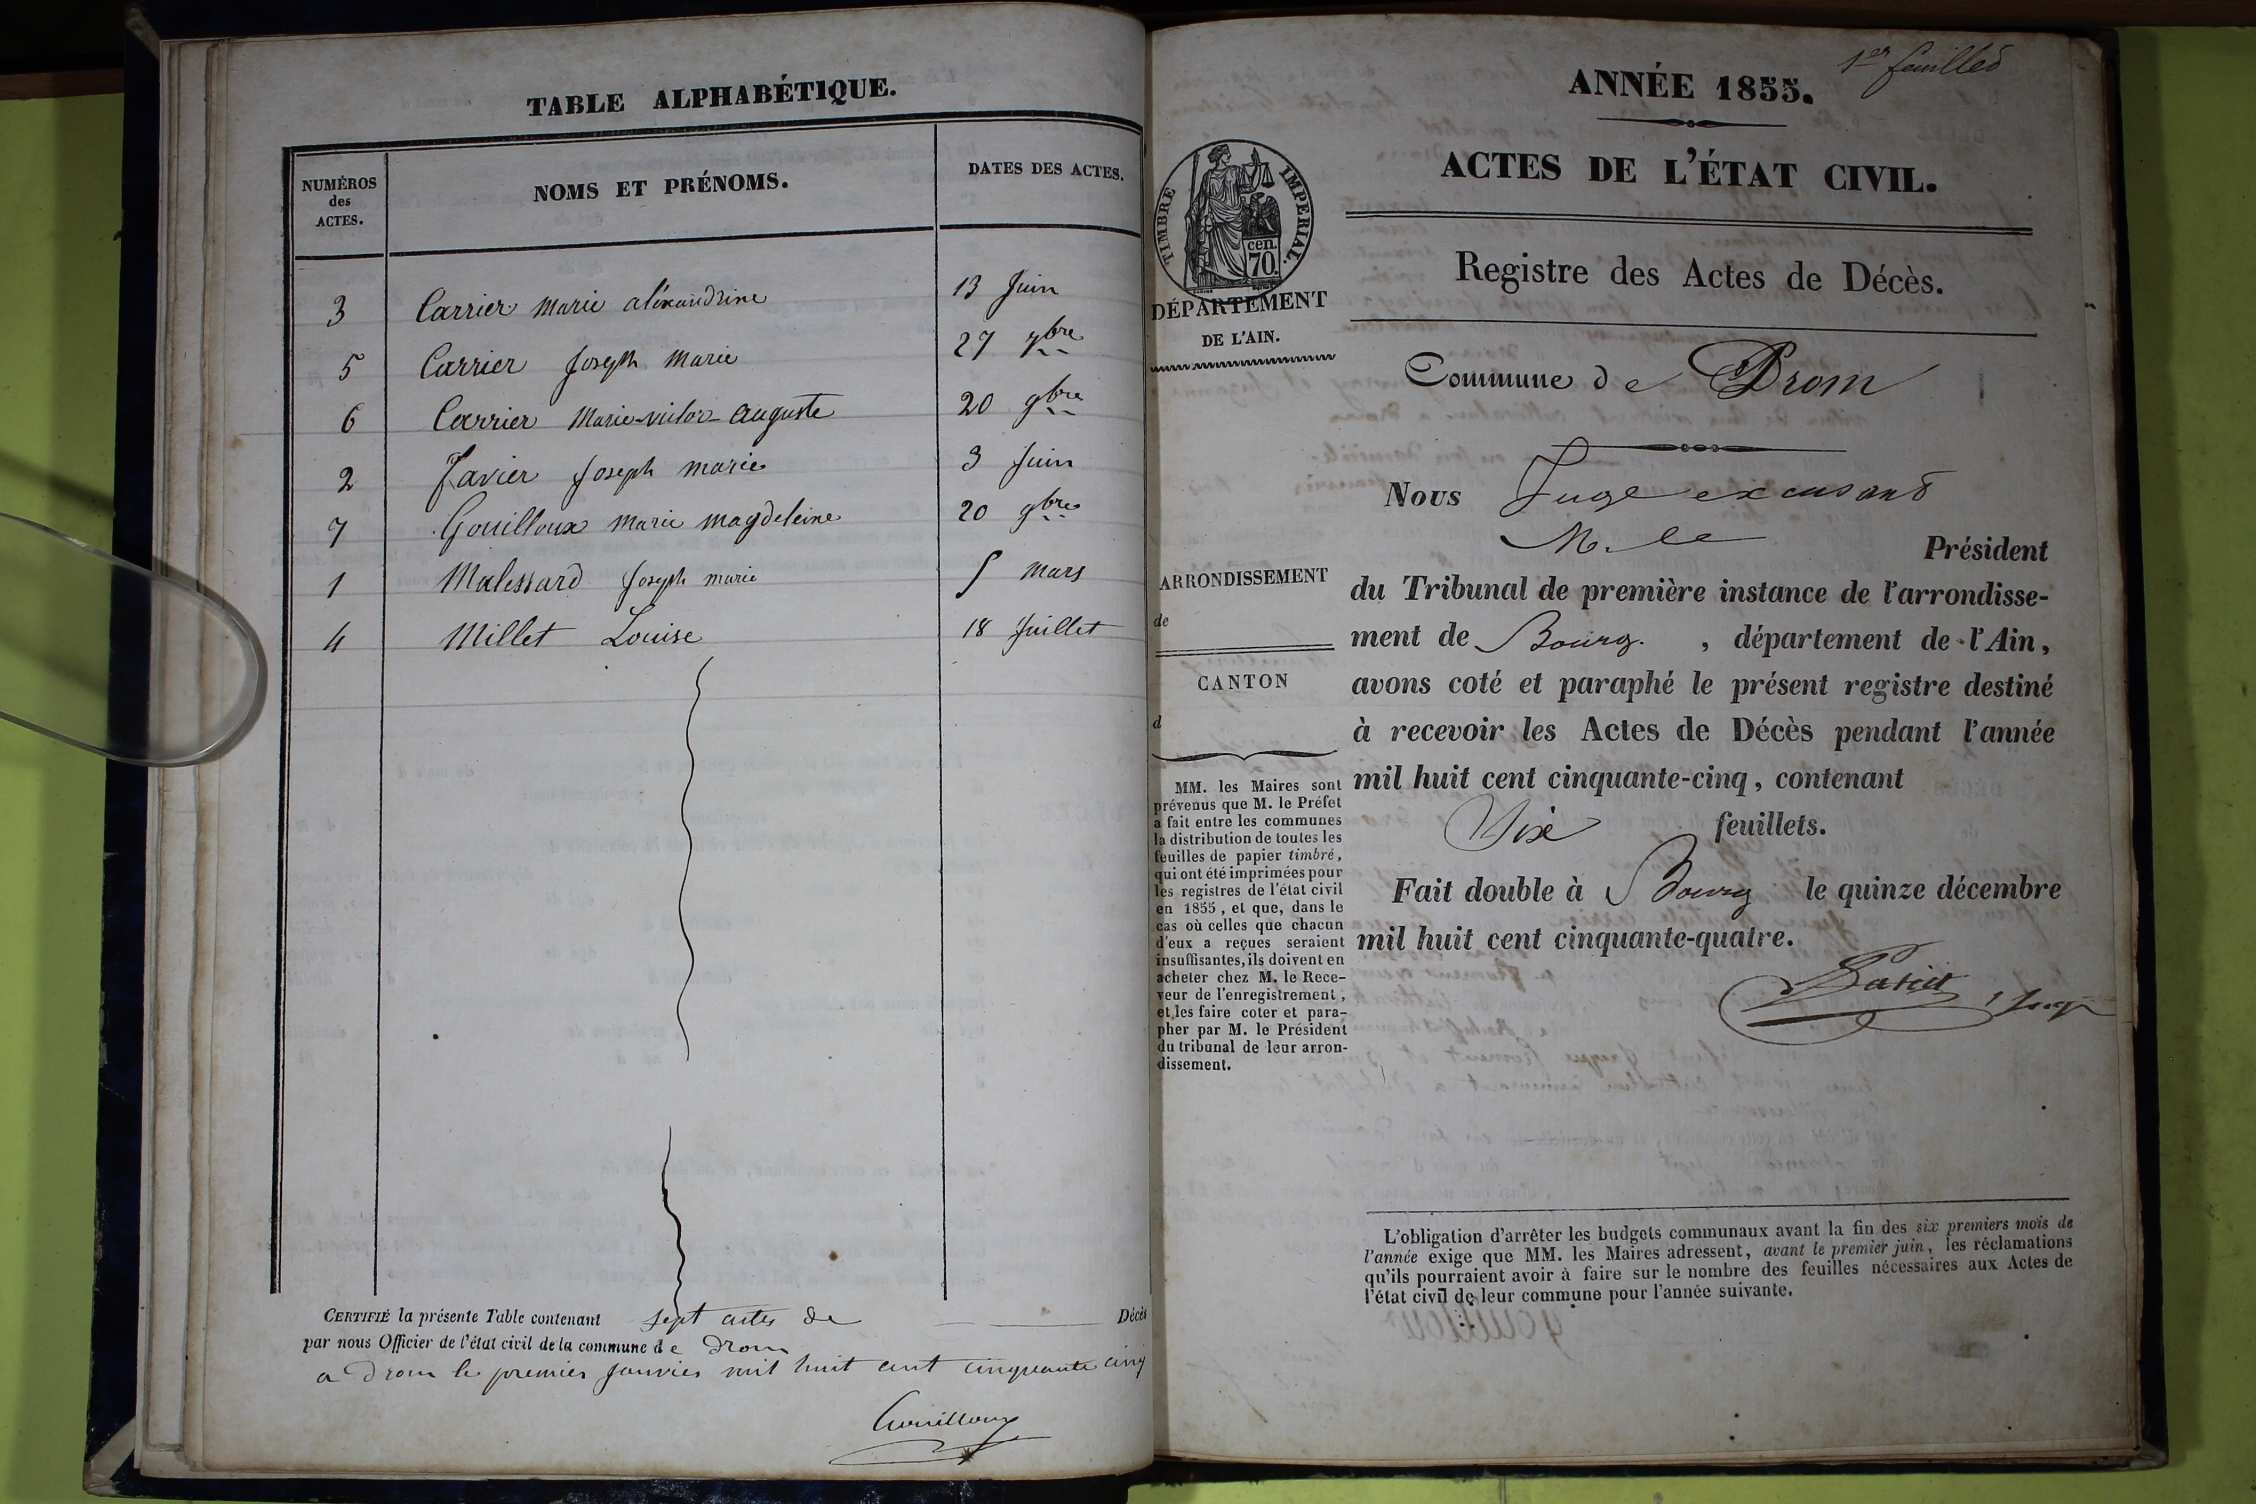 TABLE ALPHABÉTIQUE.
NUMÉROS
des
ACTES.
NOMS ET PRÉNOMS.
DATES DES ACTES.
3 Carrier marie aléxandrine 13 Juin
5 Carrier Joseph marie 27 7bre
6 Carrier Marie-victor-auguste 20 9bre
2 Favier Joseph marie 3 Juin
7 Gouilloux marie magdeleine 20 9bre
1 Malessard Joseph marie 5 mars
4 Millet Louise 18 Juillet
CERTIFIÉ la présente Table contenant sept actes de Décès
par nous Officier de l'état civil de la commune de Drom
a Drom le premier Janvier mil huit cent cinquante cinq
Gouilloux
1er feuillet
ANNÉE 1855.
ACTES DE L'ÉTAT CIVIL.
Registre des Actes de Décès.
TIMBRE IMPERIAL.
cen.
70.
DÉPARTEMENT
DE L'AIN.
ARRONDISSEMENT
de
CANTON
d
MM. les Maires sont
prévenus que M. le Préfet
a fait entre les communes
la distribution de toutes les
feuilles de papier timbré,
qui ont été imprimées pour
les registres de l'état civil
en 1855, et que, dans le
cas où celles que chacun
d'eux a reçues seraient
insuffisantes, ils doivent en
acheter chez M. le Rece-
veur de l'enregistrement,
et les faire coter et para-
pher par M. le Président
du tribunal de leur arron-
dissement.
Commune de Drom
Nous Juge excusant
M. le Président
du Tribunal de première instance de l'arrondisse-
ment de Bourg. , département de l'Ain,
avons coté et paraphé le présent registre destiné
à recevoir les Actes de Décès pendant l'année
mil huit cent cinquante-cinq, contenant
Six feuillets.
Fait double à Bourg le quinze décembre
mil huit cent cinquante-quatre.
Juge
L'obligation d'arrêter les budgets communaux avant la fin des six premiers mois de
l'année exige que MM. les Maires adressent, avant le premier juin, les réclamations
qu'ils pourraient avoir à faire sur le nombre des feuilles nécessaires aux Actes de
l'état civil de leur commune pour l'année suivante.